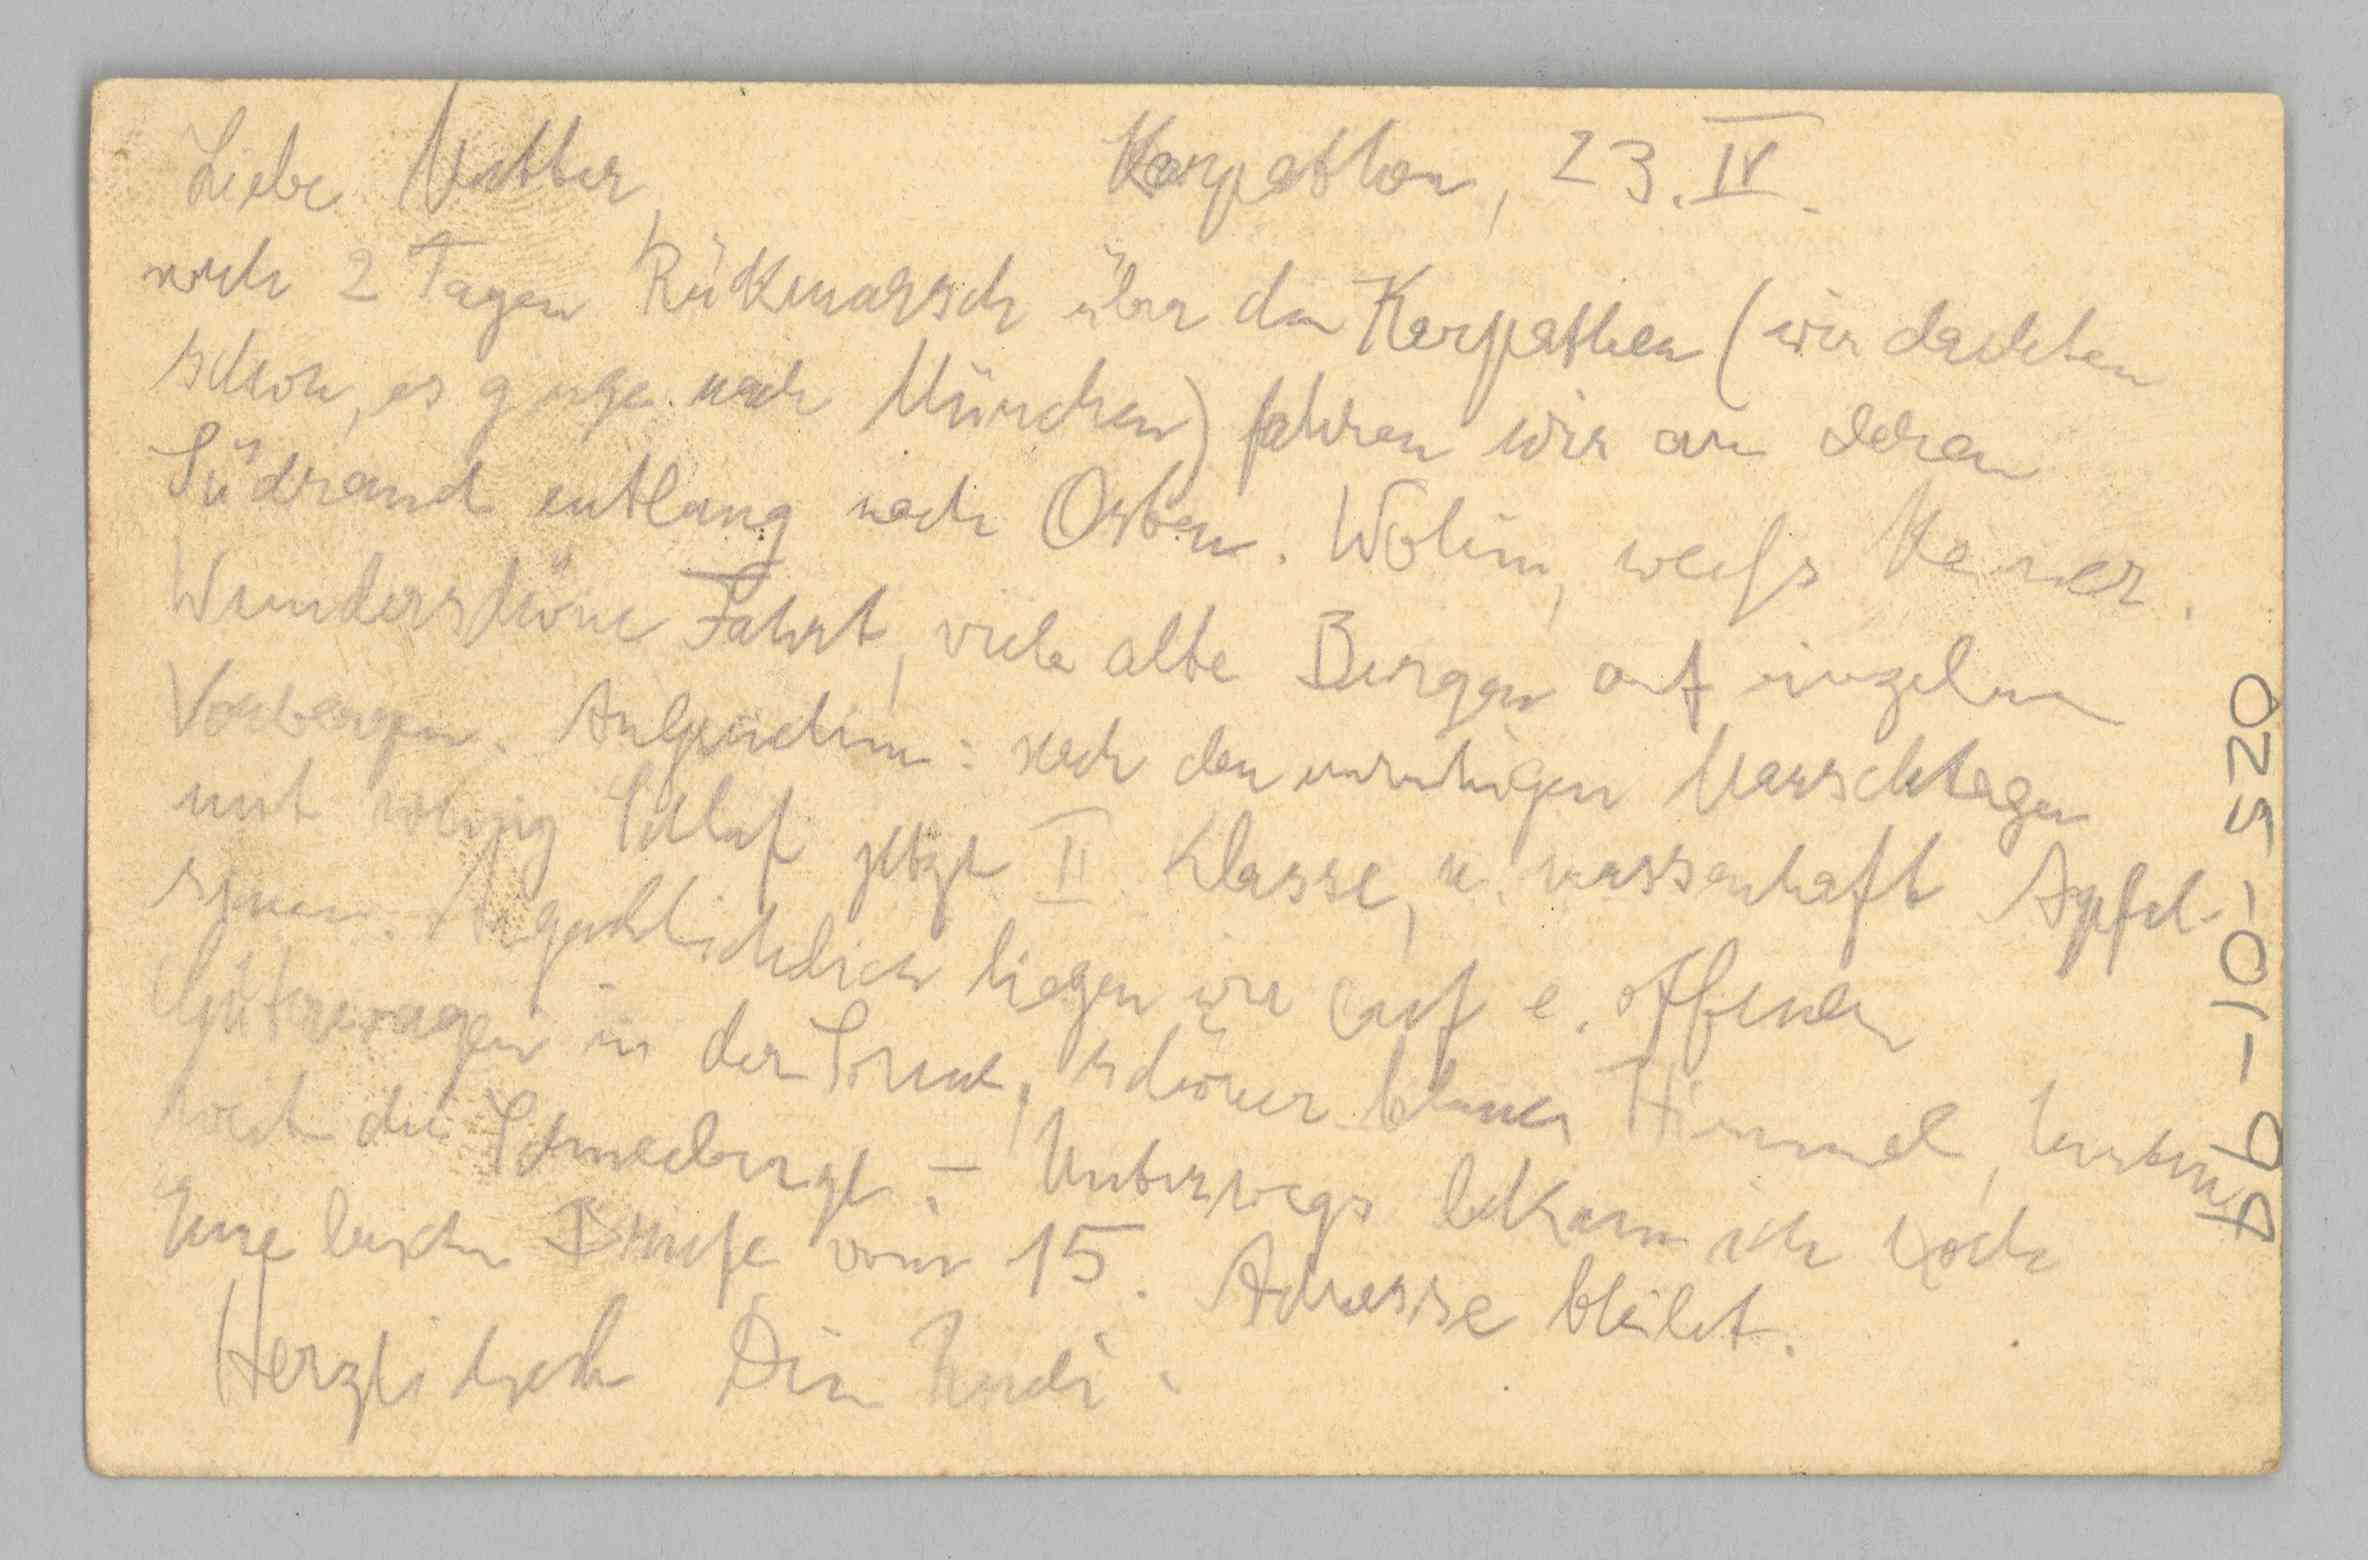 Liebe Mutter, Karpathen, 23. IV.
nach 2 Tagen Rückmarsch über die Karpathen (wir dachten
schon, es ginge nach München) fahren wir an deren
Südrand entlang nach Osten. Wohin, weiss keiner.
Wunderschöne Fahrt, viele alte Burgen auf einzelnen
Vorbergen. Aufgeräumt: nach den unruhigen Marschtagen
mit wenig Schlaf jetzt II Klasse, u. massenhaft Apfel-
sinen. Augenblicklich liegen wir auf e. offenen
Güterwagen in der Sonne, schöner blauer Himmel, hinten
weit die Schneeberge. – Unterwegs bekam ich noch
Eure lieben Briefe vom 15. Adresse bleibt.
Herzlichst Dein Rudi.
Db-10-520